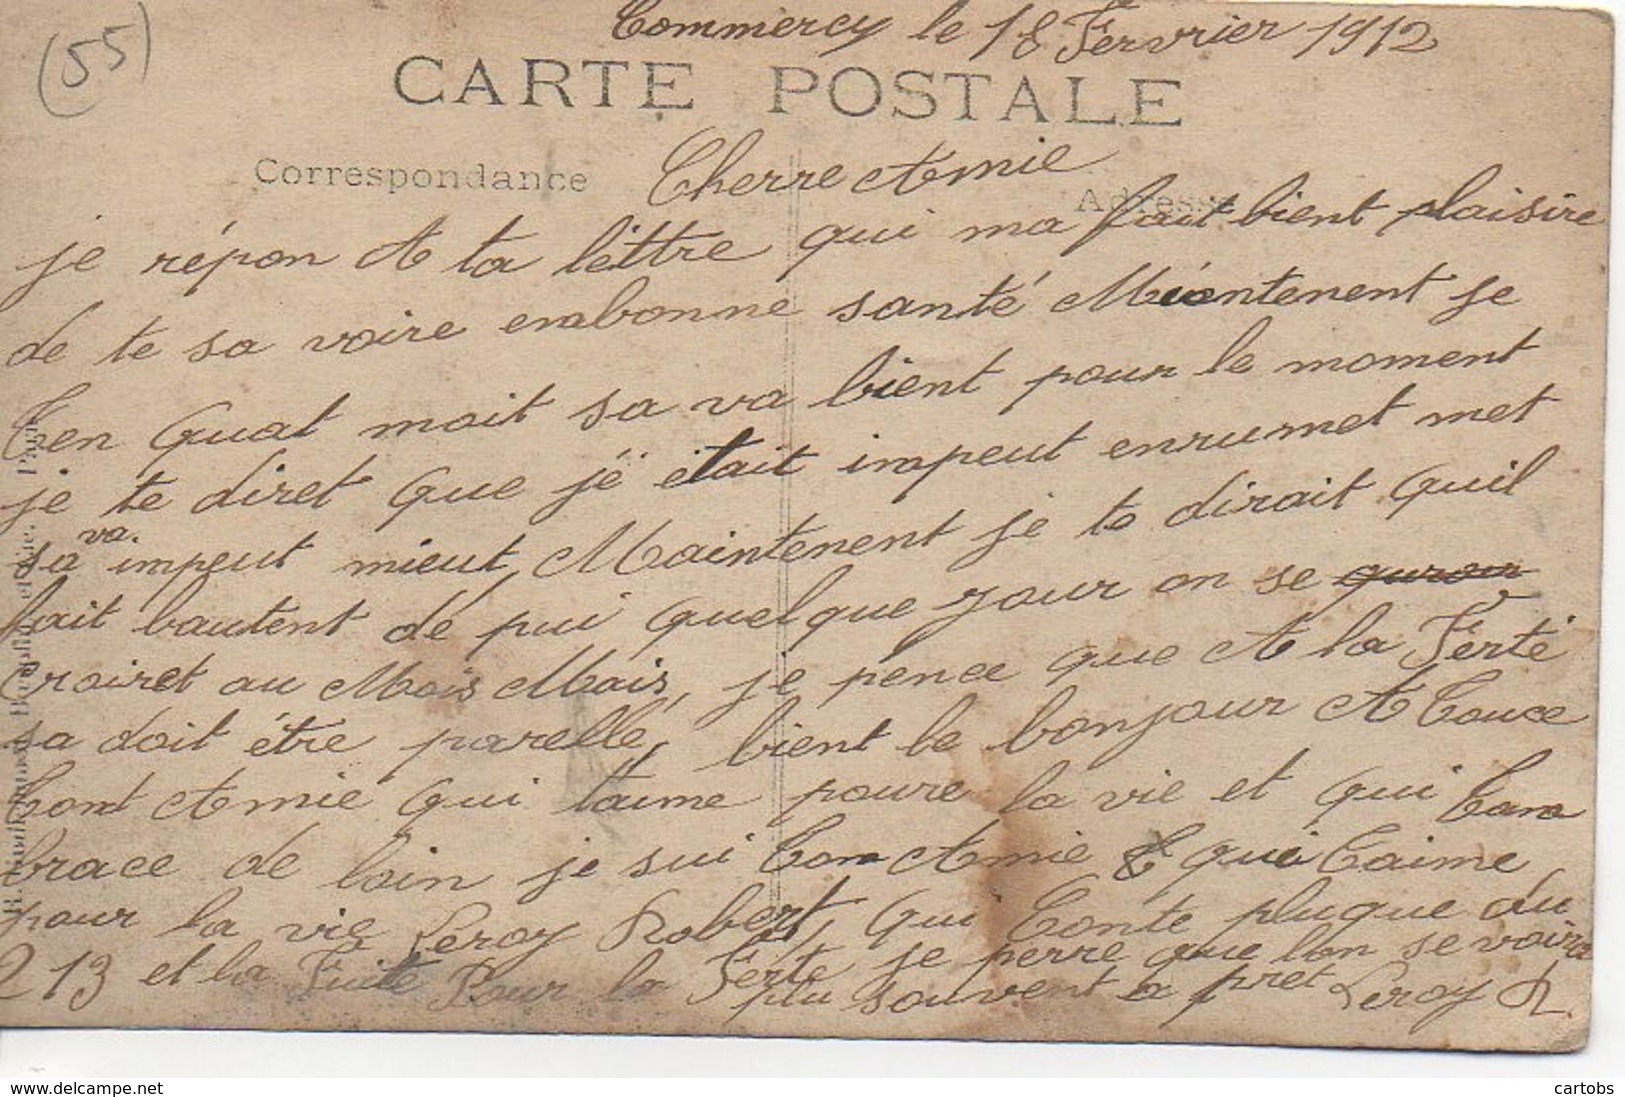 Commercy le 18 Fervrier 1912
(55)
CARTE POSTALE
Correspondance
Adresse
Cherre Amie
je répon A ta lettre qui ma fait bient plaisire
de te sa voire enbonne santé Maintenent je
Ten quat moit sa va bient pour le moment
je te diret que jé était impeut enrumet met
sa va impeut mieut, Maintenent je te dirait quil
fait bautent dé pui quelque jour on se
croiret au Mois Mais, je pence que A la Ferté
sa doit étre parellé, bient le bonjour A Touce
Tont Amie qui taime poure la vie et qui Tam
brace de loin je sui Ton Amie qui Taime
pour la vie Leroy Robert, qui Conte pluque du
213 et la Fuite Pour la Ferté je perre que lon se voira
plu souvent a pret Leroy R.
www.delcampe.net
cartobs